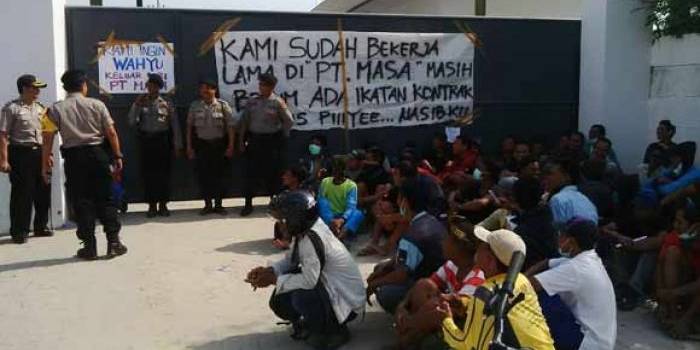 KAMI INGIN
WAHYU
KELUAR DARI
PT. MASA
KAMI SUDAH BEKERJA
LAMA DI "PT. MASA" MASIH
ADA IKATAN KONTRAK
PIIYEE... NASIBKU